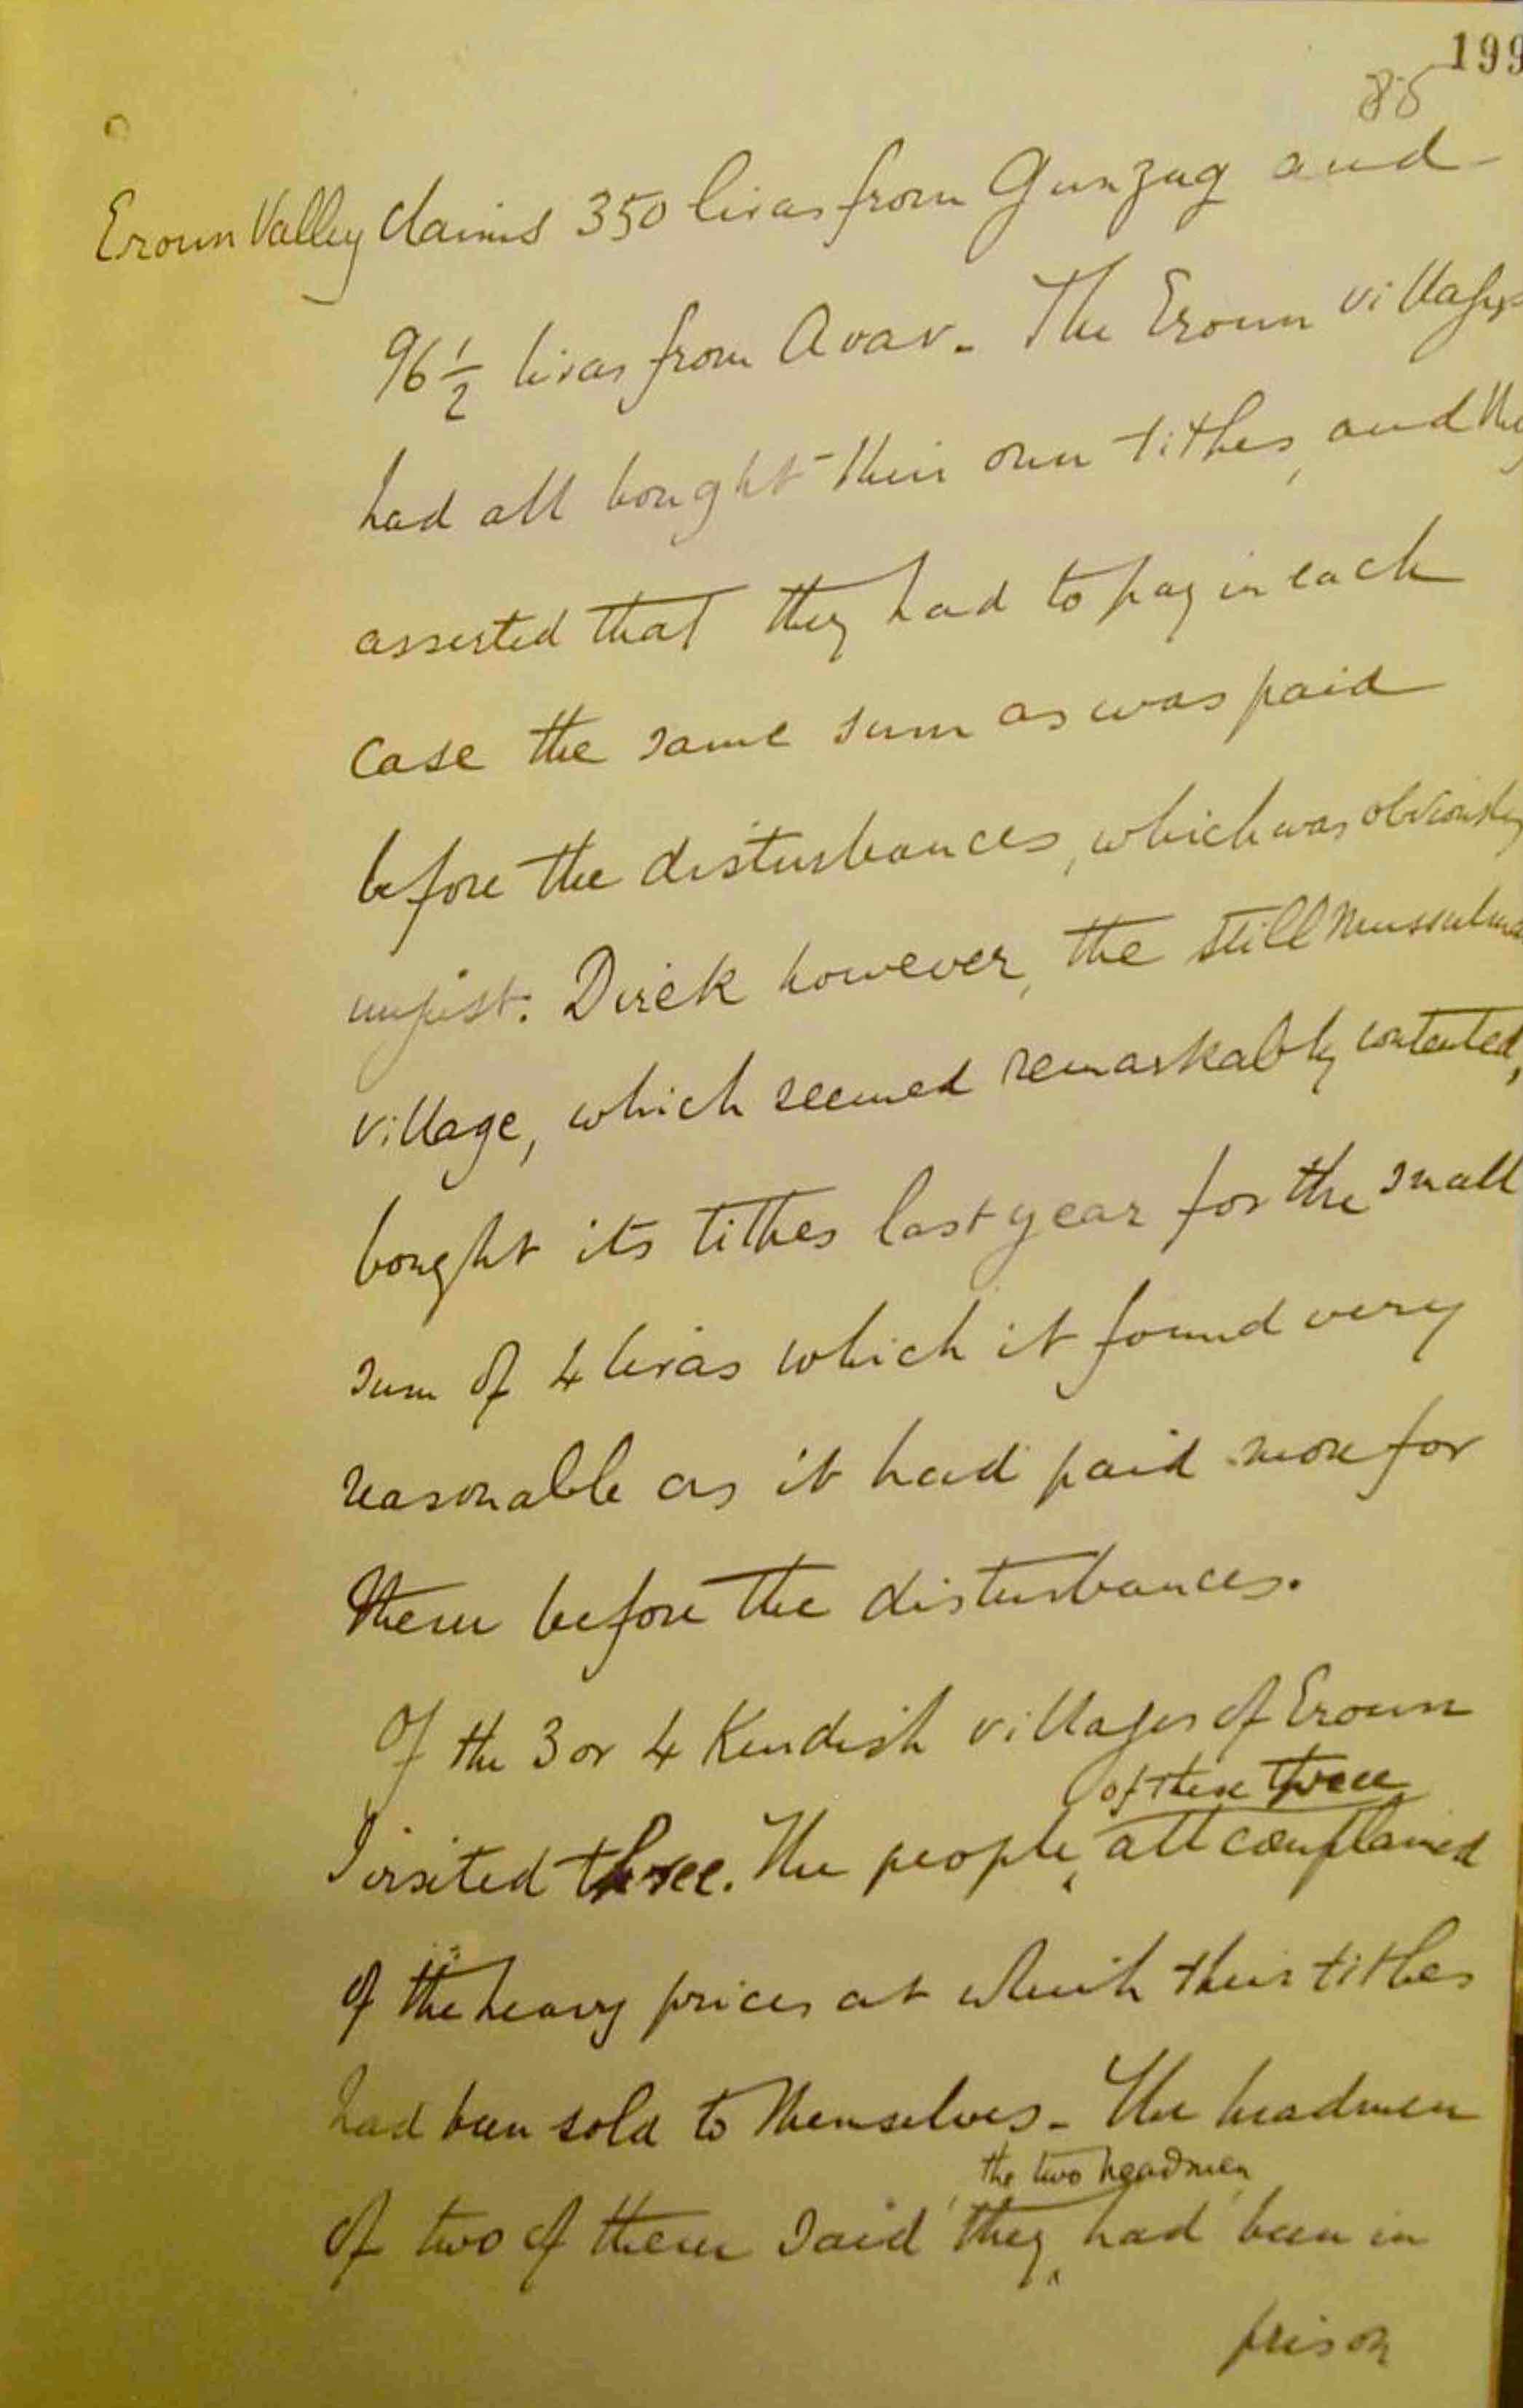 199
85
Eroun Valley claims 350 liras from Gunzug and
96 1/2 liras from Avav. The Eroun villages
had all bought their own tithes, and they
asserted that they had to pay in each
case the same sum as was paid
before the disturbances, which was obviously
unjust. Direk however, the still Mussulman
village, which seemed remarkably contented,
bought its tithes last year for the small
sum of 4 liras which it found very
reasonable as it had paid more for
them before the disturbances.
Of the 3 or 4 Kurdish villages of Eroun
of these three
I visited three. The people, all complained
of the heavy prices at which their tithes
had been sold to themselves. The headmen
the two headmen
of two of them said they had been in
prison